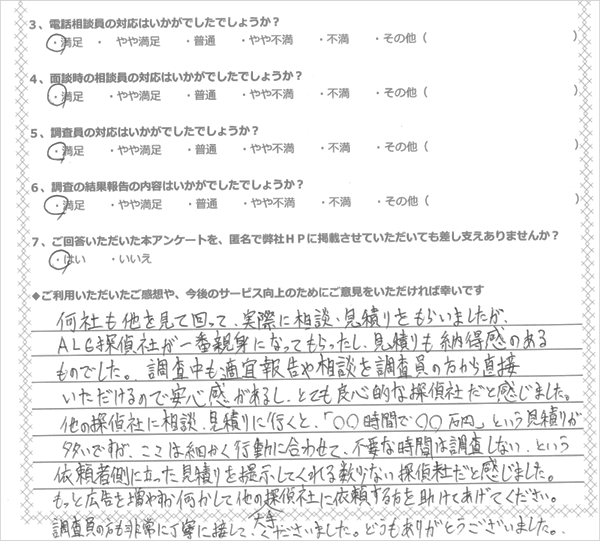 3、電話相談員の対応はいかがでしたでしょうか？
・満足　・　やや満足　・普通　・やや不満　・不満　・その他（　）
4、面談時の相談員の対応はいかがでしたでしょうか？
・満足　・やや満足　・普通　・やや不満　・不満　・その他（　）
5、調査員の対応はいかがでしたでしょうか？
・満足　・やや満足　・普通　・やや不満　・不満　・その他（　）
6、調査の結果報告の内容はいかがでしたでしょうか？
・満足　・やや満足　・普通　・やや不満　・不満　・その他（　）
7、ご回答いただいた本アンケートを、匿名で弊社ＨＰに掲載させていただいても差し支えありませんか？
・はい　・いいえ
◆ご利用いただいたご感想や、今後のサービス向上のためにご意見をいただければ幸いです
何社も他を見て回って、実際に相談・見積りをもらいましたが、
ALG探偵社が一番親身になってもらったし、見積りも納得感のある
ものでした。調査中も適宜報告や相談を調査員の方から直接
いただけるので安心感があるし、とても良心的な探偵社だと感じました。
他の探偵社に相談、見積りに行くと、「〇〇時間で〇〇万円」という見積りが
多いですが、ここは細かく行動に合わせて、不要な時間は調査しない、という
依頼者側に立った見積りを提示してくれる数少ない探偵社だと感じました。
もっと広告を増やすか何かして他の探偵社に依頼する方を助けてあげてください。
大手
調査員の方も非常に丁寧に接してくださいました。どうもありがとうございました。